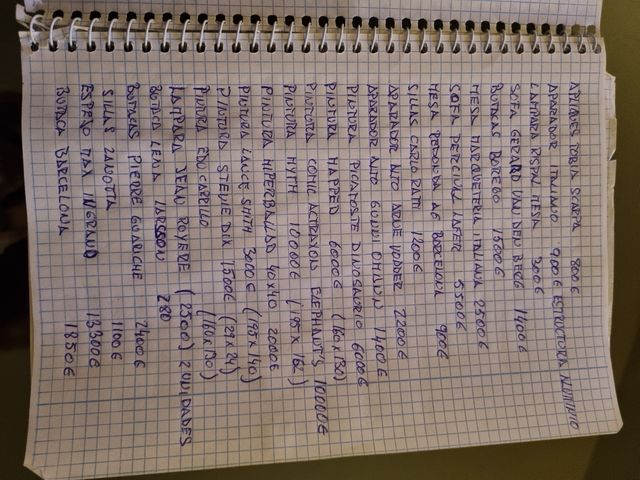 APLIQUES TOBIA SCARPA 800€
APARADOR ITALIANO 900€ ESTRUCTURA ALUMINIO
LAMPARA KISPAL MESA 300€
SOFA GERARD VAN DEN BERG 1400€
BUTACAS BORSEGO 15600€
MESA MARQUETERIA ITALIANA 25000€
SOFA PERCIVAL LAFER 5500€
MESA REDONDA AG BARCELONA 900€
SILLAS CARLO RATTI 1200€
APARADOR ALTO ARNE VODDER 2200€
APARADOR ALTO GUNNI OMANN 1400€
PINTURA PICAPOSTE DINOSAURIO 6000€
PINTURA MAPPED 6000€ (160x130)
PINTURA COMIC ACTRATOIO ELEPHANT'S 10000€
PINTURA MYTH 10000€ (195 x 162)
PINTURA HIPERBALLAD 40x40 2000€
PINTURA LANCE SMITH 3000€ (142x140)
PINTURA STEVIE DIX 1500€ (27x24)
PINTURA EDU CARRILLO (160x130)
LAMPARA JEAN ROYERE (2500) 2 UNIDADES
BUTACA LENA LARSSON 280
BUTACAS PIERRE GUARICHE 2400€
SILLAS ZANOTTA 1100€
ESPEJO MAX INGRAND 13300€
BUTACA BARCELONA 1850€